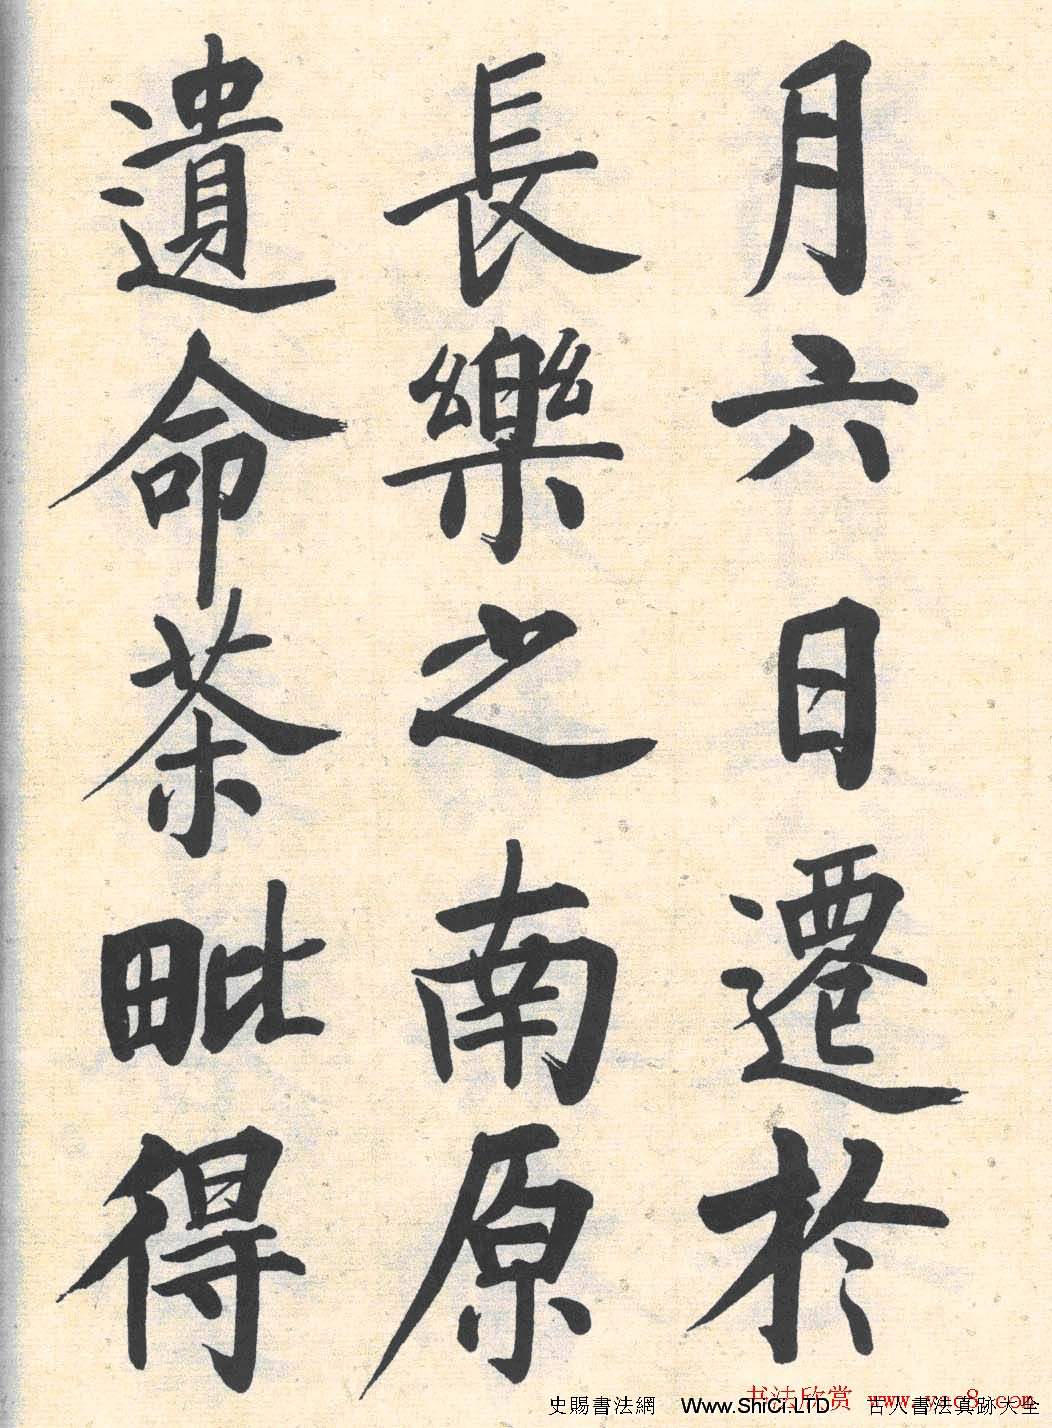 月六日遷於
長樂之南原
遺命茶毗得
史賜書法網 Www.ShiCi.LTD 古人書法真跡大全
书法欣赏 www.yac8.com